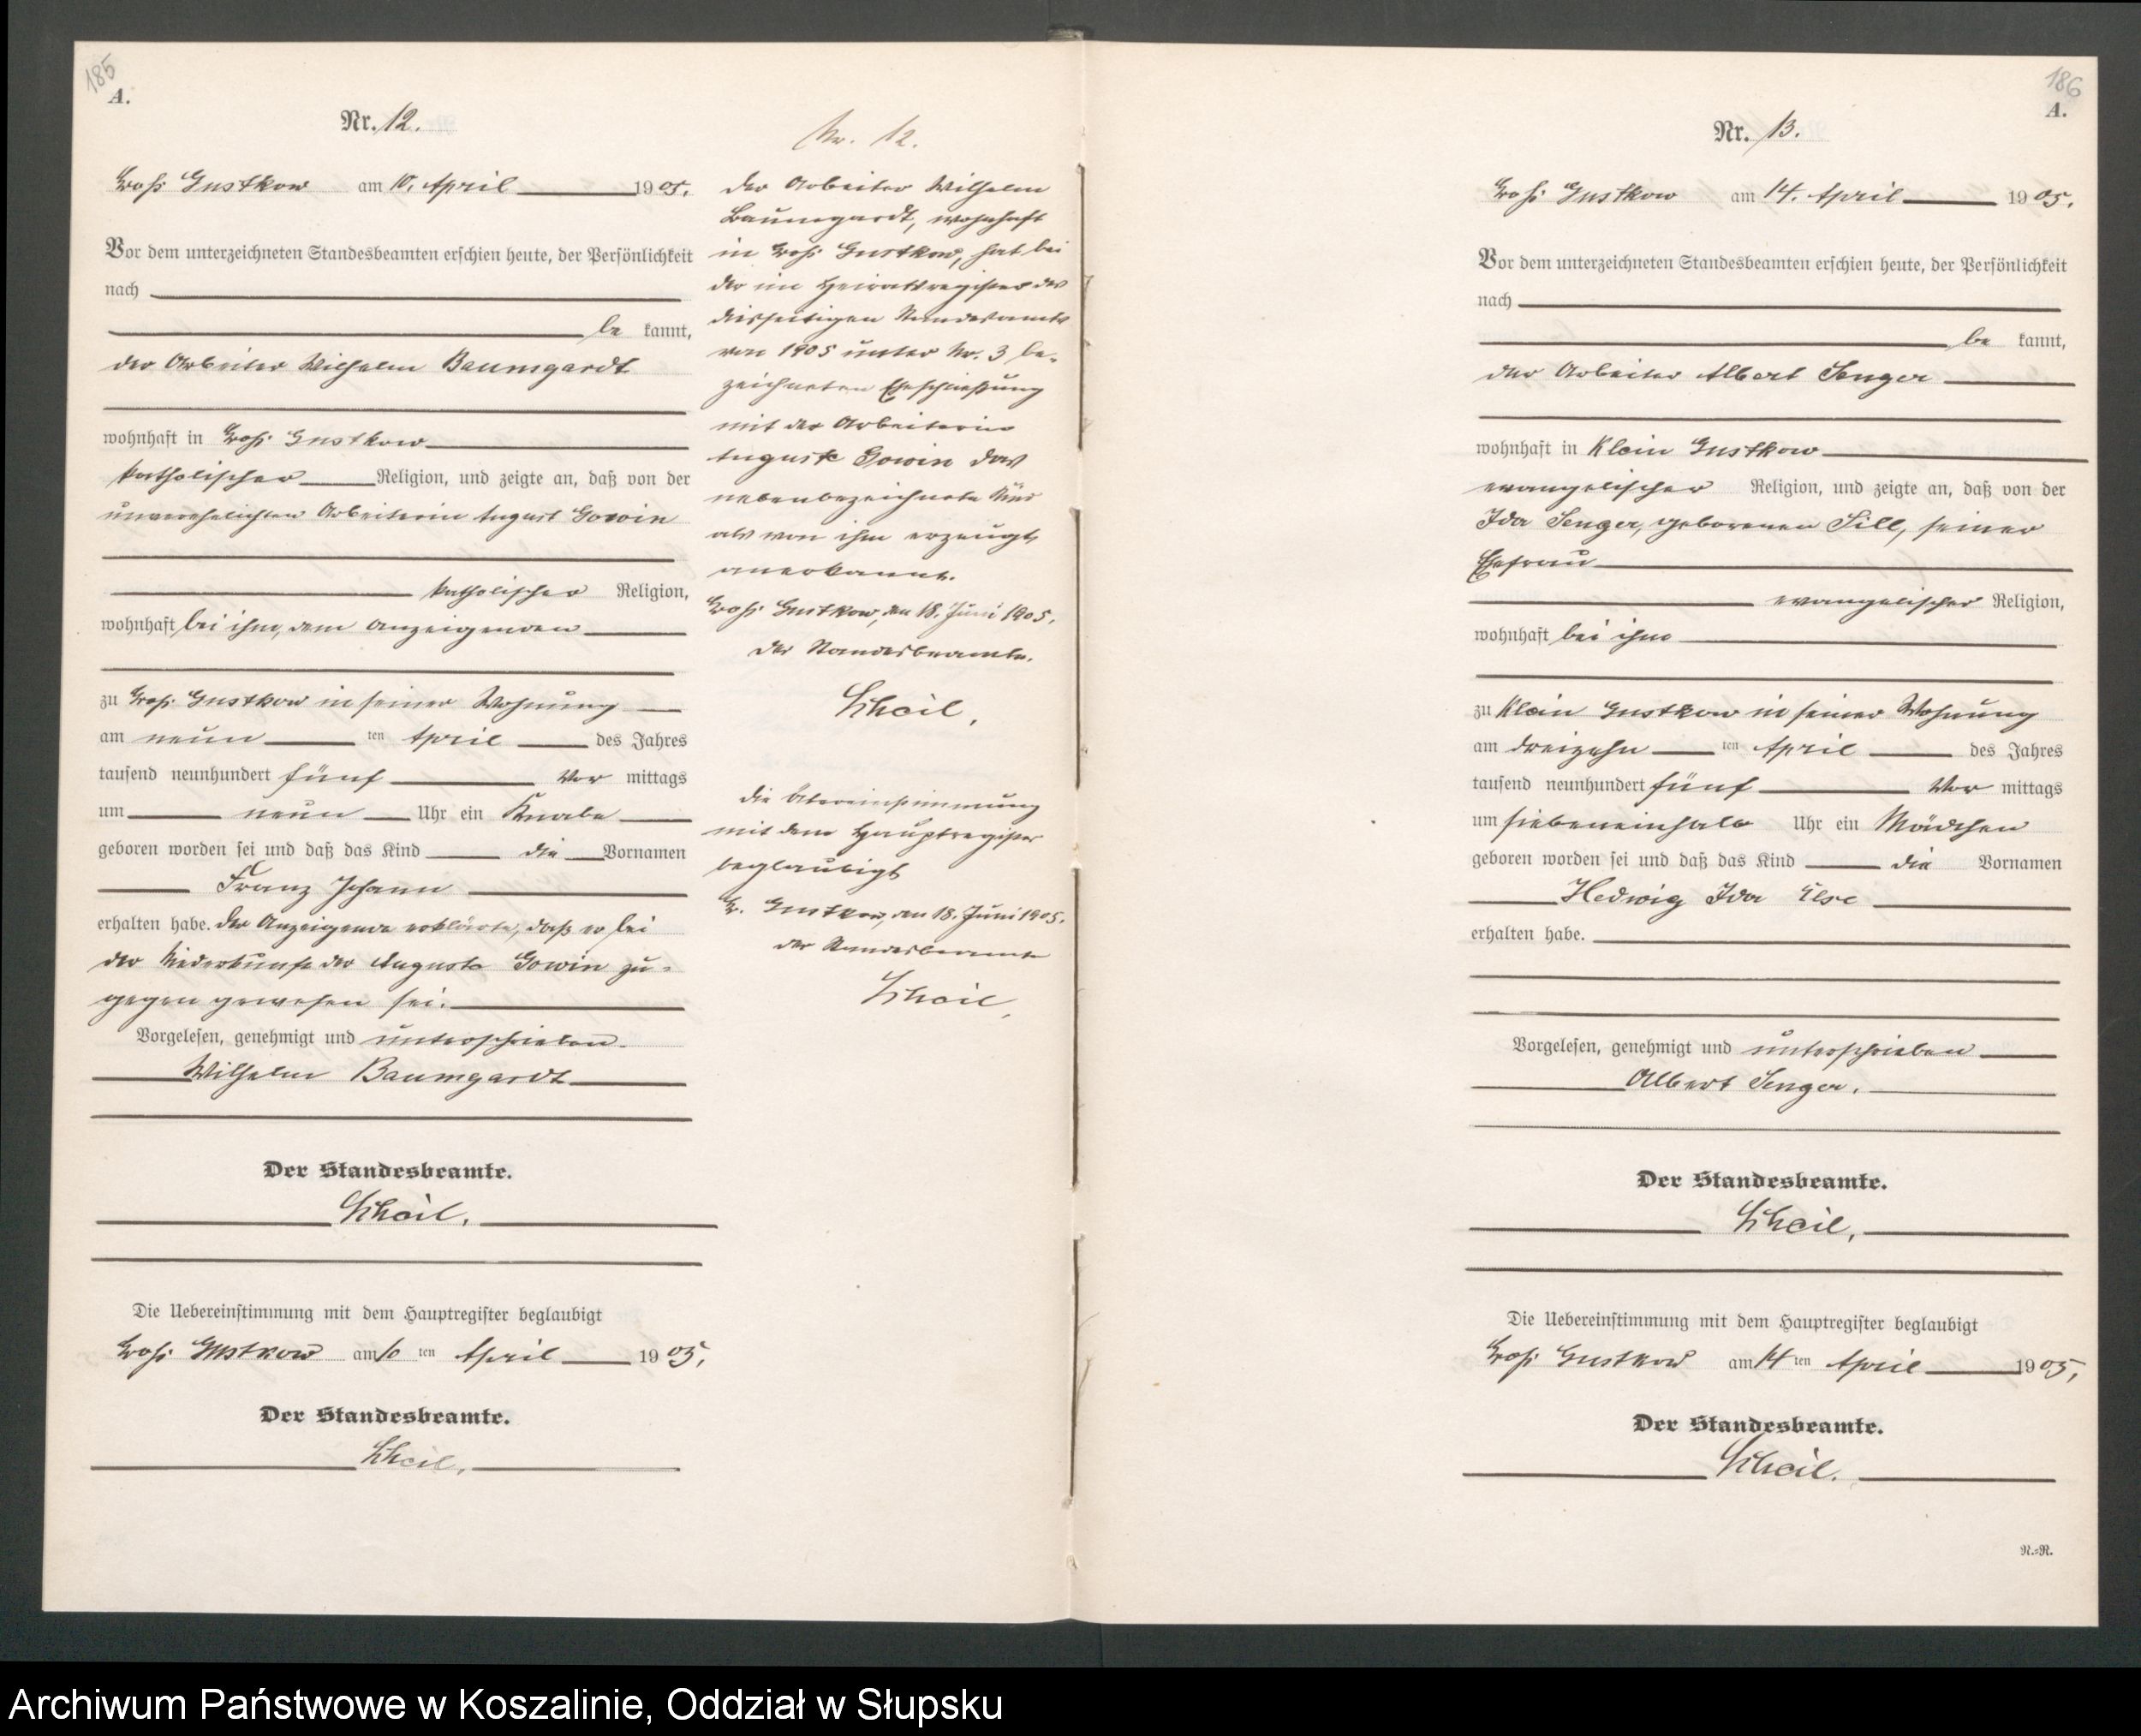 185
A.
Nr. 12.
Groß Gustkow am 10. April 1905.
Vor dem unterzeichneten Standesbeamten erschien heute, der Persönlichkeit
nach
be kannt,
der Arbeiter Wilhelm Baumgardt
wohnhaft in Groß Gustkow
katholischer Religion, und zeigte an, daß von der
unverehelichten Arbeiterin August Gowin
katholischer Religion,
wohnhaft bei ihm, dem Anzeigenden
zu Groß Gustkow in seiner Wohnung
am neun ten April des Jahres
tausend neunhundert fünf Vor mittags
um neun Uhr ein Knabe
geboren worden sei und daß das Kind die Vornamen
Franz Johann
erhalten habe. Der Anzeigende erklärte, daß er bei
der Niederkunft der Auguste Gowin zu-
gegen gewesen sei.
Vorgelesen, genehmigt und unterschrieben
Wilhelm Baumgardt
Der Standesbeamte.
Scheil.
Die Uebereinstimmung mit dem Hauptregister beglaubigt
Groß Gustkow am 10 ten April 1905.
Der Standesbeamte.
Scheil.
Nr. 12.
Der Arbeiter Wilhelm
Baumgardt, wohnhaft
in Groß Gustkow, hat bei
der im Heiratsregister des
diesseitigen Standesamts
von 1905 unter Nr. 3 be-
zeichneten Eheschließung
mit der Arbeiterin
Auguste Gowin das
nebenbezeichnete Kind
als von ihm erzeugt
anerkannt.
Groß Gustkow, den 18. Juni 1905.
Der Standesbeamte.
Scheil.
Die Übereinstimmung
mit dem Hauptregister
beglaubigt
Gr. Gustkow, den 18. Juni 1905.
Der Standesbeamte
Scheil.
186
A.
Nr. 13.
Groß Gustkow am 14. April 1905.
Vor dem unterzeichneten Standesbeamten erschien heute, der Persönlichkeit
nach
be kannt,
der Arbeiter Albert Senger
wohnhaft in Klein Gustkow
evangelischer Religion, und zeigte an, daß von der
Ida Senger, geborenen Sill, seiner
Ehefrau
evangelischer Religion,
wohnhaft bei ihm
zu Klein Gustkow in seiner Wohnung
am dreizehn ten April des Jahres
tausend neunhundert fünf Vor mittags
um siebeneinhalb Uhr ein Mädchen
geboren worden sei und daß das Kind die Vornamen
Hedwig Ida Else
erhalten habe.
Vorgelesen, genehmigt und unterschrieben
Albert Senger.
Der Standesbeamte.
Scheil.
Die Uebereinstimmung mit dem Hauptregister beglaubigt
Groß Gustkow am 14 ten April 1905.
Der Standesbeamte.
Scheil.
N.=R.
Archiwum Państwowe w Koszalinie, Oddział w Słupsku